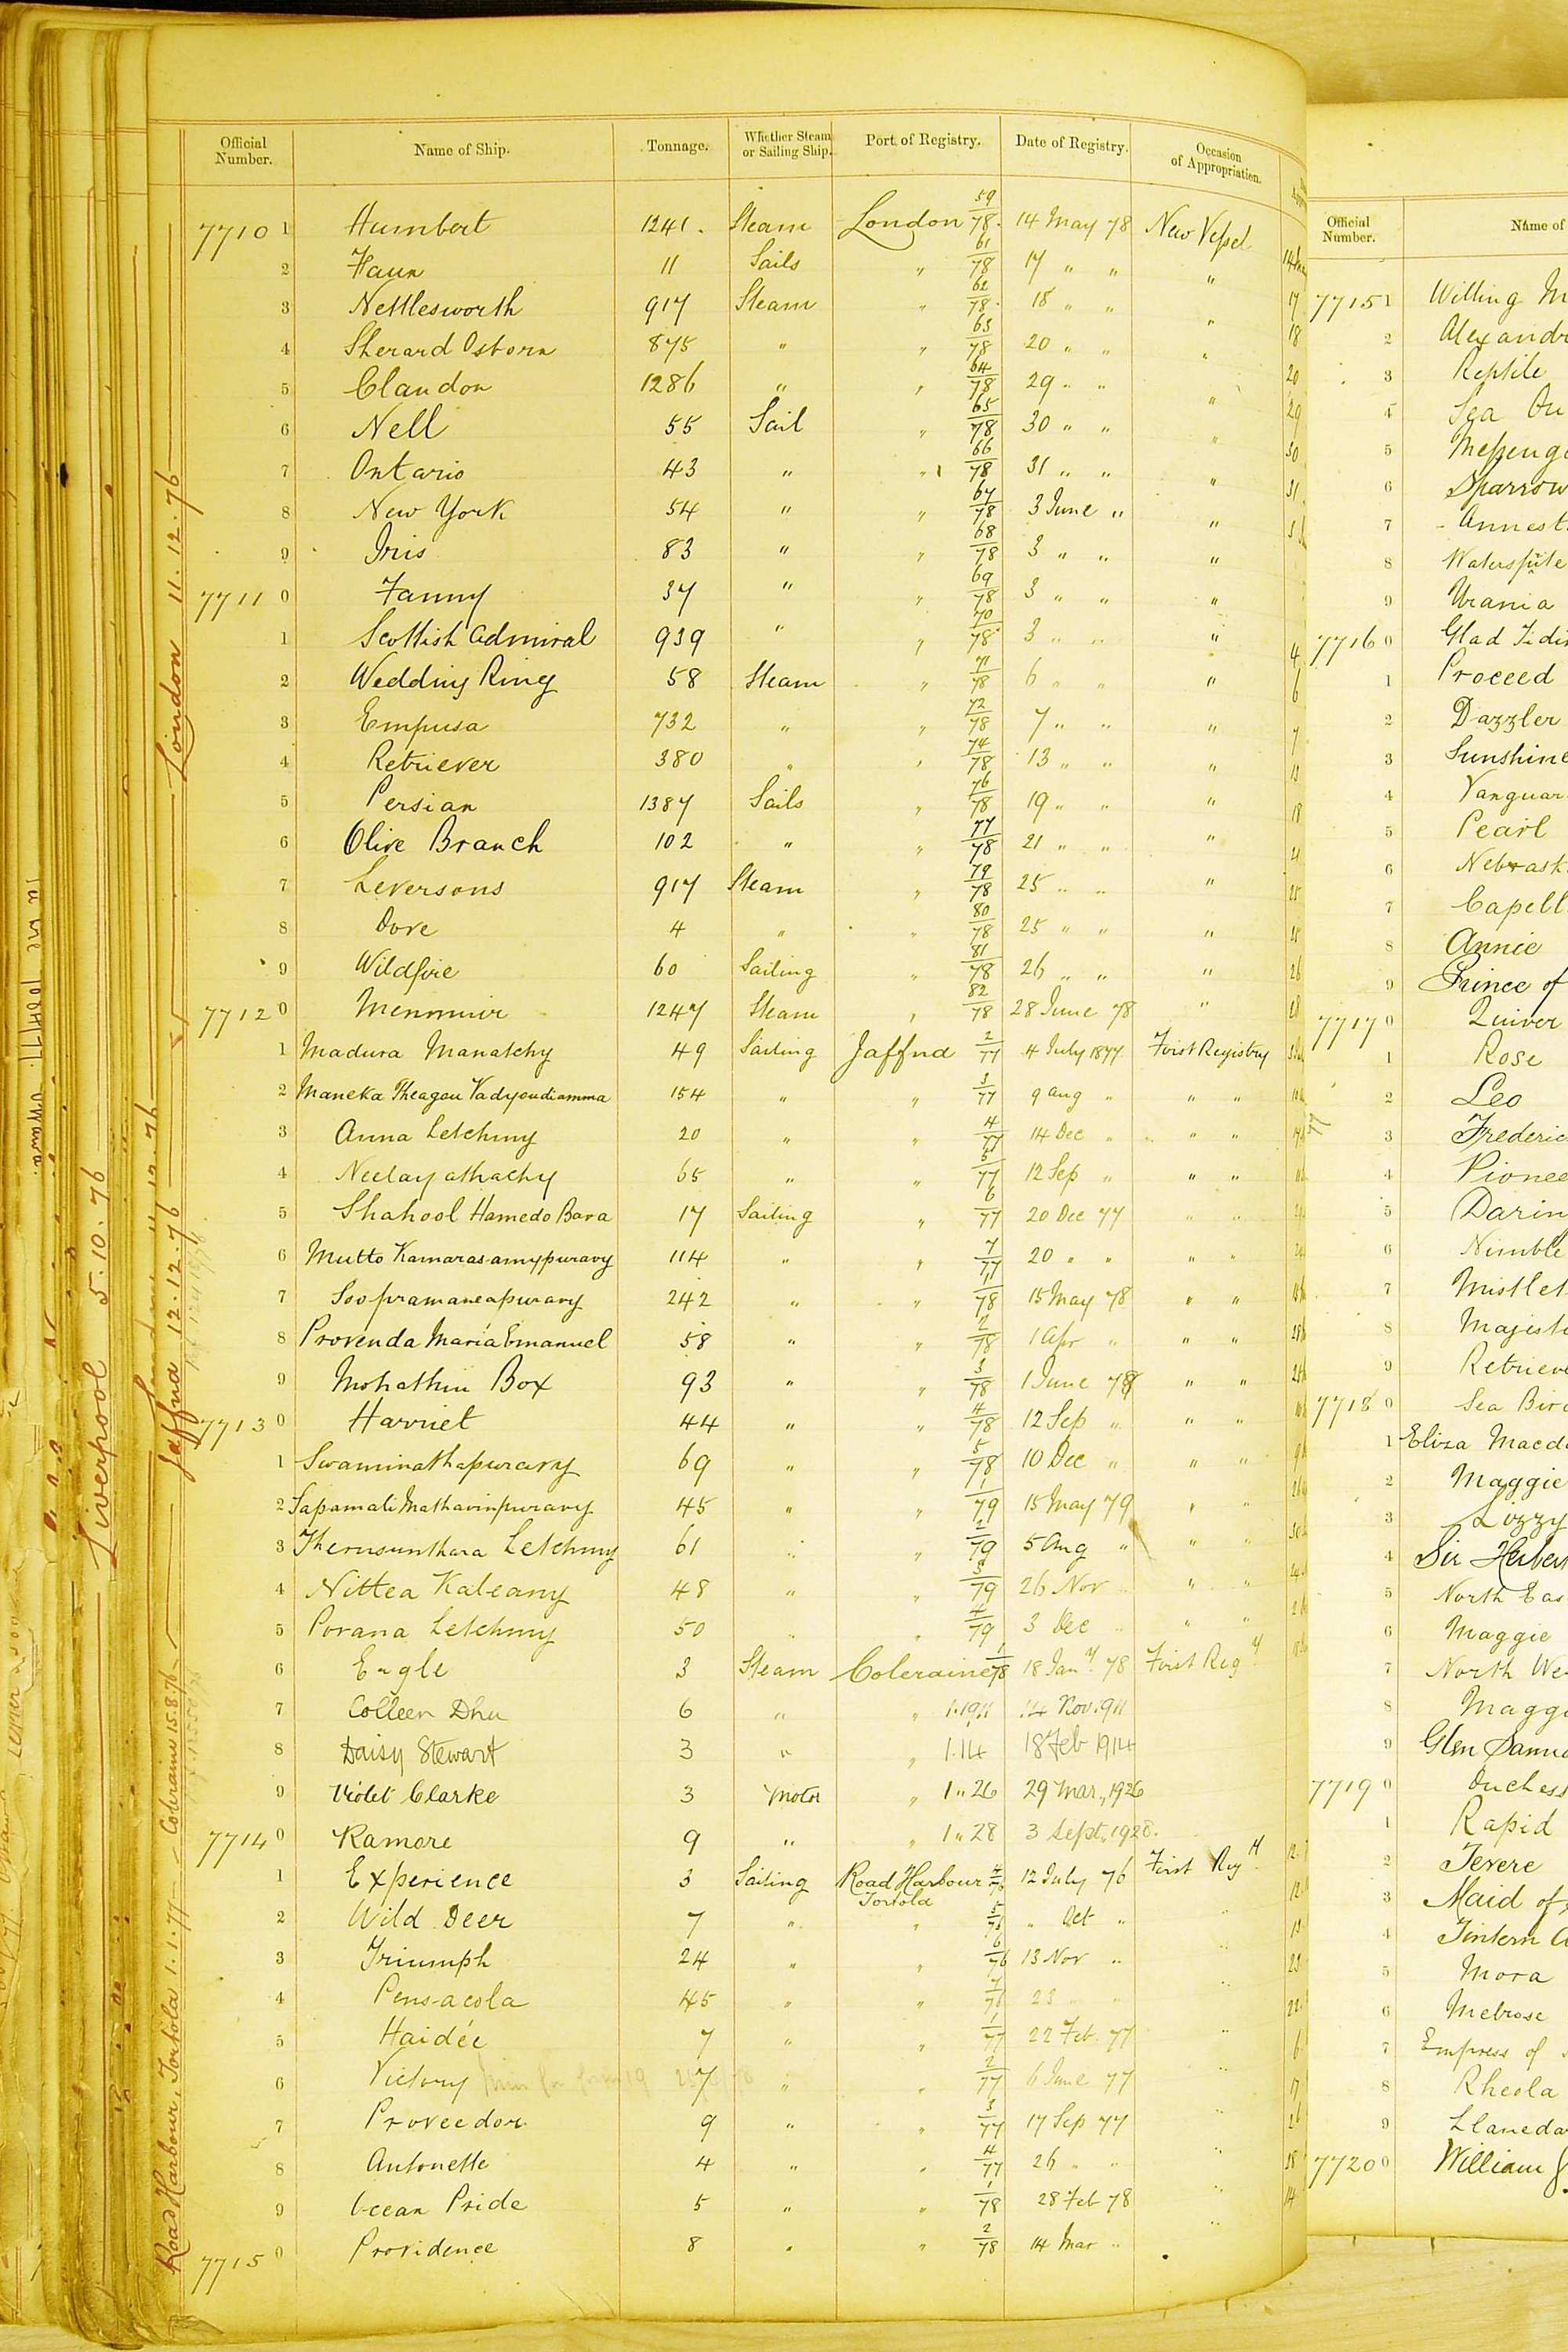 Official Number. Name of Ship. Tonnage. Whether Steam or Sailing Ship. Port of Registry. Date of Registry. Occasion of Appropriation.
7710 1 Humbert 1241. Steam London 59/78. 14 May 78 New Vessel
2 Faun 11 Sails " 61/78 17 " " "
3 Nettlesworth 917 Steam " 62/78. 18 " " "
4 Sherard Osborn 875 " " 63/78 20 " " "
5 Clandon 1286 " " 64/78 29 " " "
6 Nell 55 Sail " 65/78 30 " " "
7 Ontario 43 " " 66/78 31 " " "
8 New York 54 " " 67/78 3 June " "
9 Iris 83 " " 68/78 3 " " "
7711 0 Fanny 37 " " 69/78 3 " " "
1 Scottish Admiral 939 " " 70/78 3 " " "
2 Wedding Ring 58 Steam " 71/78 6 " " "
3 Empusa 732 " " 72/78 7 " " "
4 Retriever 380 " " 74/78 13 " " "
5 Persian 1387 Sails " 76/78 19 " " "
6 Olive Branch 102 " " 77/78 21 " " "
7 Leversons 917 Steam " 79/78 25 " " "
8 Dove 4 " " 80/78 25 " " "
9 Wildfire 60 Sailing " 81/78 26 " " "
7712 0 Menmuir 1247 Steam " 82/78 28 June 78 "
1 Madura Manatchy 49 Sailing Jaffna 2/77 4 July 1877 First Registry
2 Maneka Theagau Vadyoudiamma 154 " " 3/77 9 Aug " " "
3 Anna Letchmy 20 " " 4/77 14 Dec " " "
4 Neelayathachy 65 " " 5/77 12 Sep " " "
5 Shahool Hamedo Bava 17 Sailing " 6/77 20 Dec 77 " "
6 Mutto Kamarasamypuravy 114 " " 7/77 20 " " " "
7 Soopramaneapuravy 242 " " 1/78 15 May 78 " "
8 Provenda Maria Emanuel 58 " " 2/78 1 Apr " " "
9 Mohathin Box 93 " " 3/78 1 June 78 " "
7713 0 Harriet 44 " " 4/78 12 Sep " " "
1 Swaminathapuravy 69 " " 5/78 10 Dec " " "
2 Sapamali Mathavinpuravy 45 " " 1/79 15 May 79 " "
3 Therusunthara Letchmy 61 " " 2/79 5 Aug " " "
4 Nittea Kaleany 48 " " 3/79 26 Nov " " "
5 Porana Letchmy 50 " " 4/79 3 Dec " " "
6 Eagle 3 Steam Coleraine 1/78 18 Jany. 78 First Regy.
7 Colleen Dhu 6 " " 1.1911 14 Nov. 1911
8 Daisy Stewart 3 " " 1.14 18 Feb 1914
9 Violet Clarke 3 Motor " 1 " 26 29 Mar., 1926
7714 0 Ramore 9 " " 1 " 28 3 Sept., 1928.
1 Experience 3 Sailing Road Harbour Tortola 4/76 12 July 76 First Regy.
2 Wild Deer 7 " " 5/76 " Oct " "
3 Triumph 24 " " 6/76 13 Nov " "
4 Pensacola 45 " " 7/76 23 " " "
5 Haidée 7 " " 1/77 22 Feb. 77 "
6 Victory 7 " " 2/77 6 June 77 "
7 Proveedor 9 " " 3/77 17 Sep 77 "
8 Antonette 4 " " 4/77 26 " " "
9 Ocean Pride 5 " " 1/78 28 Feb 78 "
7715 0 Providence 8 " " 2/78 14 Mar "
Liverpool 5.10.76
London 11.12.76
Jaffna 12.12.76
Coleraine 15.8.76
Road Harbour, Tortola 1.1.77
Official Number. Name of
7715 1 Willing M
2 Alexandr
3 Reptile
4 Sea Qu
5 Messenge
6 Sparrow
7 Annest
8 Waterspite
9 Urania
7716 0 Glad Tidin
1 Proceed
2 Dazzler
3 Sunshine
4 Vanguar
5 Pearl
6 Nebrask
7 Capell
8 Annie
9 Prince of
7717 0 Quiver
1 Rose
2 Leo
3 Frederic
4 Pionee
5 Darin
6 Nimble
7 Mistlet
8 Majest
9 Retrieve
7718 0 Sea Bird
1 Eliza Macdo
2 Maggie
3 Lizzy
4 Sir Herbert
5 North Eas
6 Maggie
7 North We
8 Maggi
9 Glen Sannox
7719 0 Duchess
1 Rapid
2 Tevere
3 Maid of
4 Tintern A
5 Mora
6 Melrose
7 Empress of
8 Rheola
9 Llaneda
7720 0 William